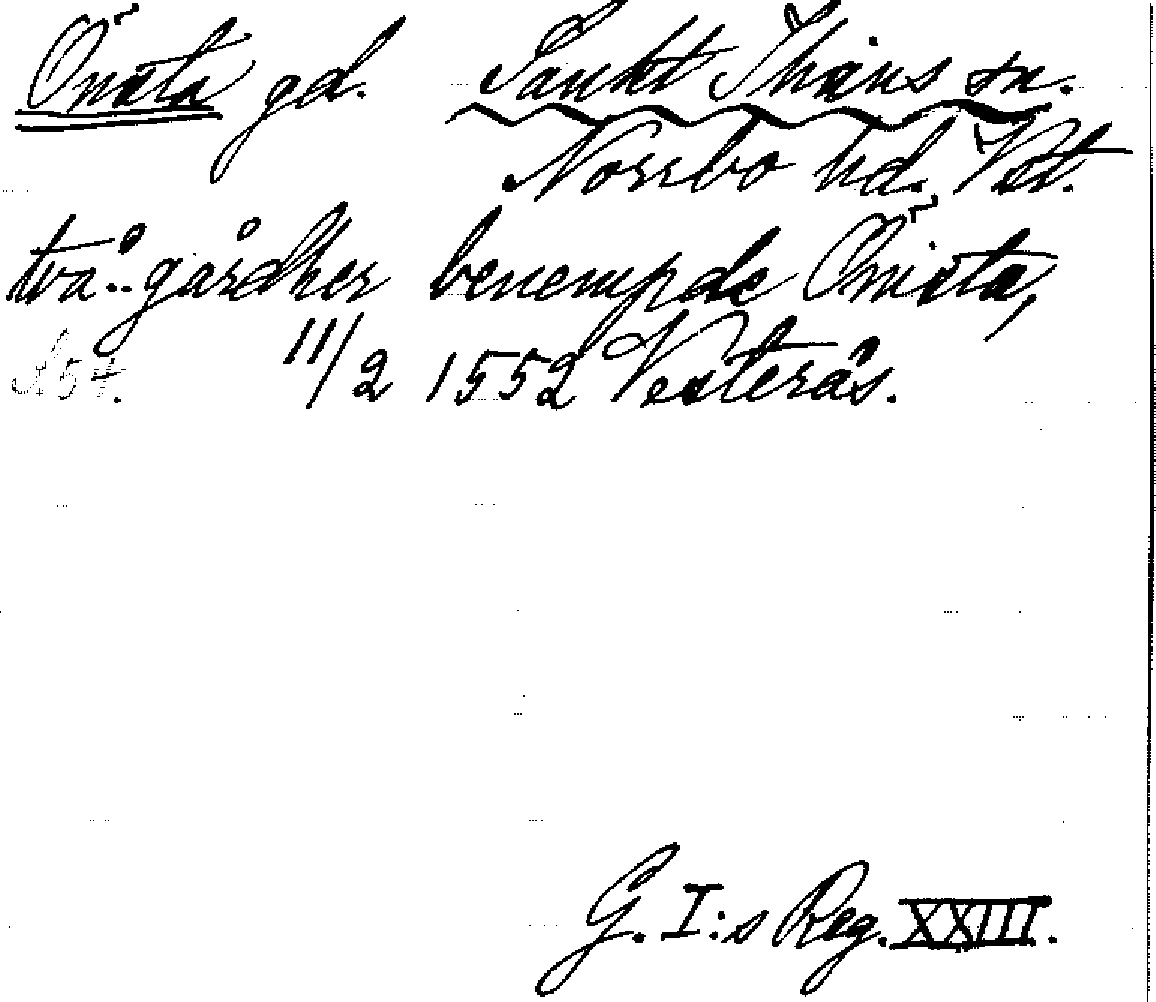 Önsta gd. Sankt Ihans sn.
Norrbo hd. Vst.
två.. gårdher benempde Önista,
S. 54. 11/2 1552 Vesterås.
G. I:s Reg. XXIII.